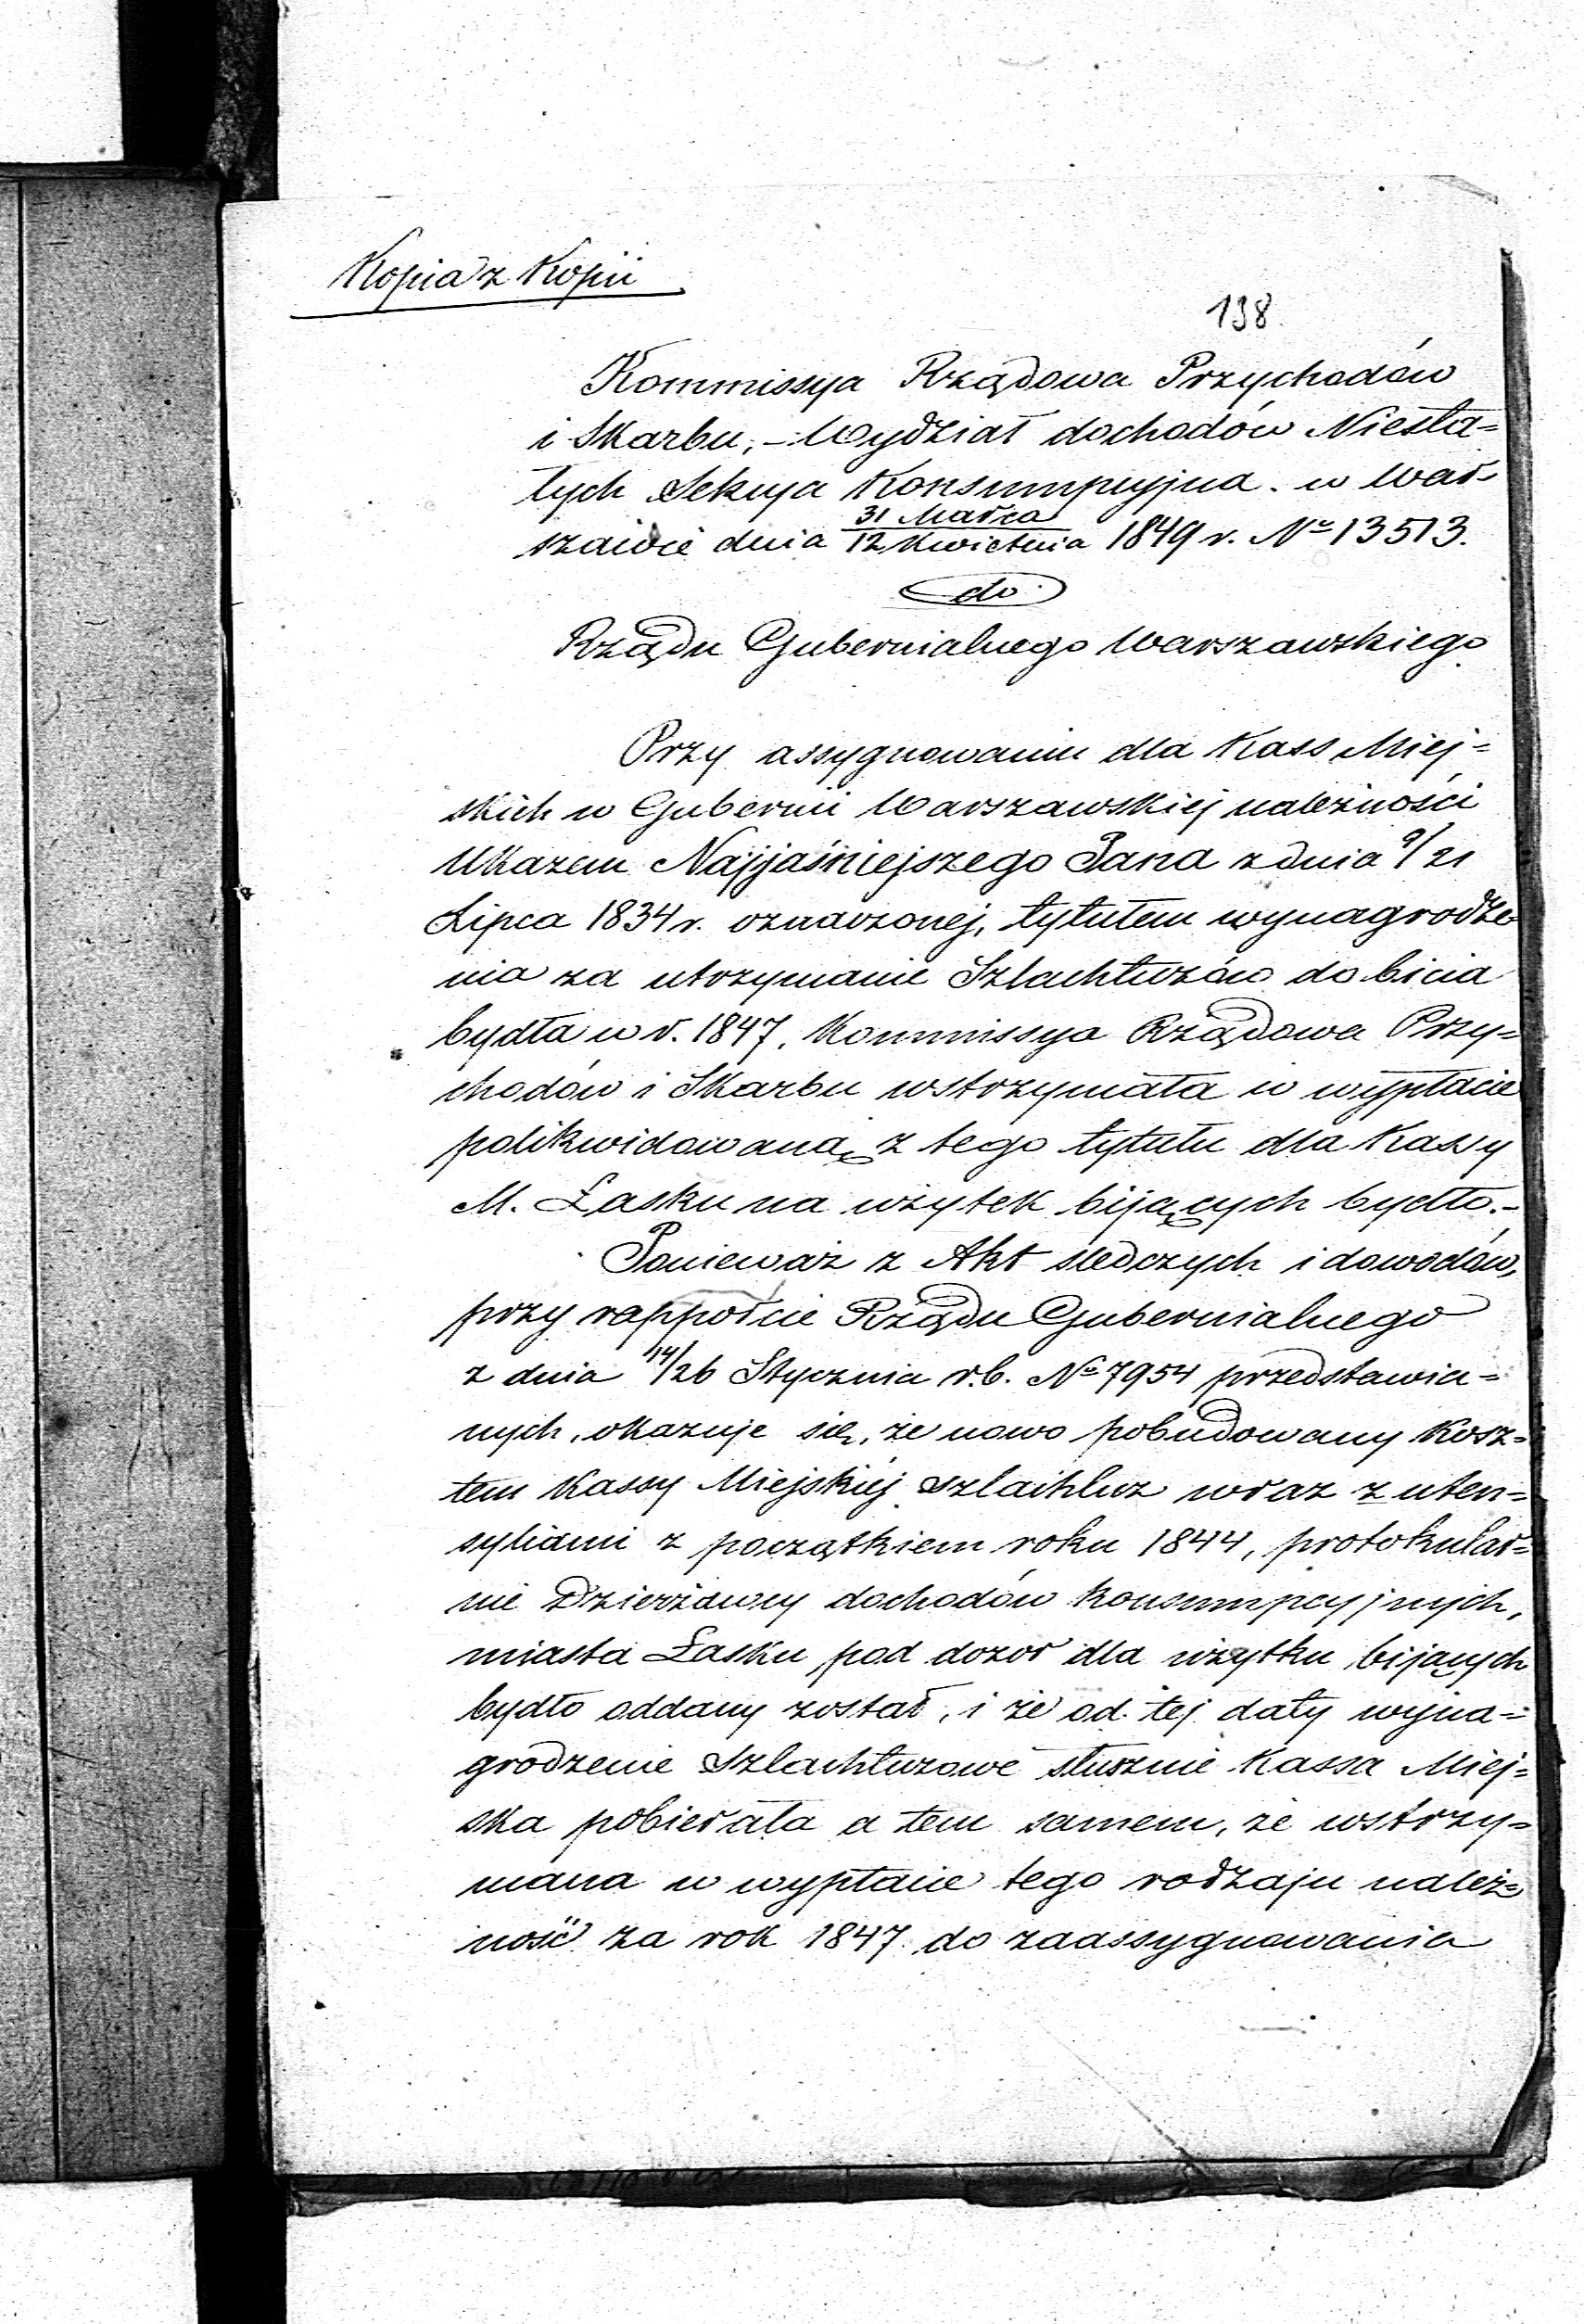 Kopia z Kopii
198.
Kommissya Rządowa Przychodów
i Skarbu, – Wydział dochodów Niesta=
łych Sekcya Konsumpcyjna. w War=
szawie dnia 31 Marca / 12 Kwietnia 1849 r. No 13513.
do
Rządu Gubernialnego Warszawskiego
Przy assygnowaniu dla Kass Miej=
skich w Gubernii Warszawskiej należności
Ukazem Najjaśniejszego Pana z dnia 9/21
Lipca 1834 r. oznaczonej, tytułem wynagrodze
nia za utrzymanie Szlachtuzów do bicia
bydła w r. 1847, Kommissya Rządowa Przy=
chodów i Skarbu wstrzymała w wypłacie
polikwidowaną z tego tytułu dla Kassy
M. Łasku na użytek bijących bydło.–
Ponieważ z Akt śledczych i dowodów,
przy rapporcie Rządu Gubernialnego
z dnia 14/26 Stycznia r.b. No 7954 przedstawio=
nych, okazuje się, że nowo pobudowany kosz=
tem Kassy Miejskiej szlachtuz wraz z uten=
syliami z początkiem roku 1844, protokular=
nie Dzierżawcy dochodów konsumpcyjnych,
miasta Łasku pod dozór dla użytku bijących
bydło oddany został, i że od tej daty wyna=
grodzenie Szlachtuzowe słusznie Kassa Miej=
ska pobierała a tem samem, że wstrzy=
mana w wypłacie tego rodzaju należ=
ność za rok 1847 do zaassygnowania